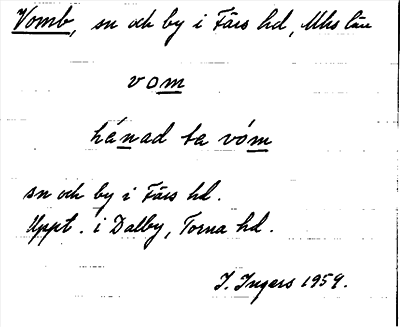 Vomb, sn och by i Färs hd, Mhs län
vom
hánad ta vóm
sn och by i Färs hd.
Uppt. i Dalby, Torna hd.
I. Ingers 1959.